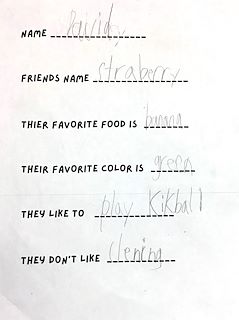 NAME
FRIENDS NAME straberry
THIER FAVORITE FOOD IS banana
THEIR FAVORITE COLOR IS green
THEY LIKE TO play Kikball
THEY DON'T LIKE clening